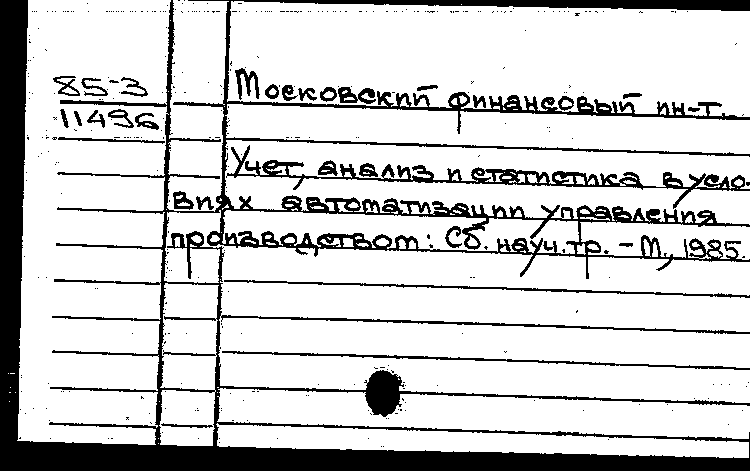 85-3
11496
Московский финансовый ин-т.
Учет, анализ и статистика в усло-
виях автоматизации управления
производством: Сб. науч. тр. - М., 1985.